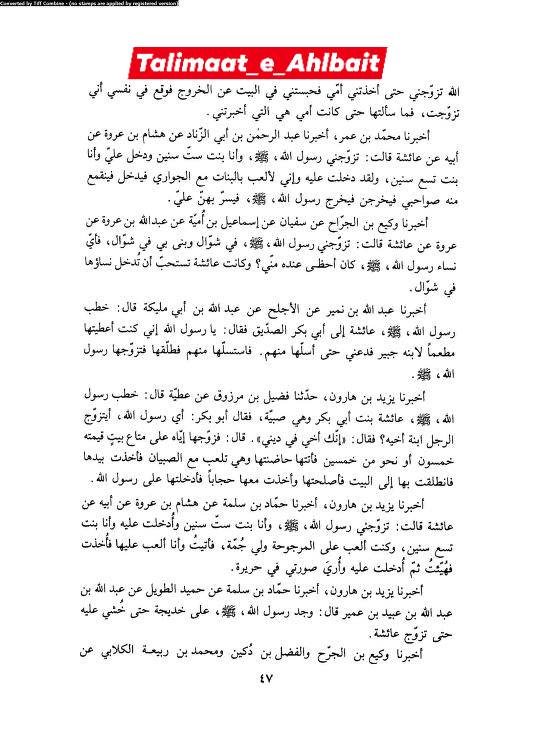 Converted by Tiff Combine - (no stamps are applied by registered version)
Talimaat_e_Ahlbait
الله تزوّجني حتى أخذتني أمّي فحبستني في البيت عن الخروج فوقع في نفسي أني
تزوّجت، فما سألتها حتى كانت أمي هي التي أخبرتني.
أخبرنا محمّد بن عمر، أخبرنا عبد الرحمٰن بن أبي الزّناد عن هشام بن عروة عن
أبيه عن عائشة قالت: تزوّجني رسول الله، ﷺ، وأنا بنت ستّ سنين ودخل عليّ وأنا
بنت تسع سنين، ولقد دخلت عليه وإني لألعب بالبنات مع الجواري فيدخل فينقمع
منه صواحبي فيخرجن فيخرج رسول الله، ﷺ، فيسرّ بهنّ عليّ.
أخبرنا وكيع بن الجرّاح عن سفيان عن إسماعيل بن أُميّة عن عبدالله بن عروة عن
عروة عن عائشة قالت: تزوّجني رسول الله، ﷺ، في شوّال وبنى بي في شوّال، فأيّ
نساء رسول الله، ﷺ، كان أحظى عنده منّي؟ وكانت عائشة تستحبّ أن تُدخل نساؤها
في شوّال.
أخبرنا عبد الله بن نمير عن الأجلح عن عبد الله بن أبي مليكة قال: خطب
رسول الله، ﷺ، عائشة إلى أبي بكر الصدّيق فقال: يا رسول الله إني كنت أعطيتها
مطعماً لابنه جبير فدعني حتى أسلّها منهم. فاستسلّها منهم فطلّقها فتزوّجها رسول
الله، ﷺ.
أخبرنا يزيد بن هارون، حدّثنا فضيل بن مرزوق عن عطيّة قال: خطب رسول
الله، ﷺ، عائشة بنت أبي بكر وهي صبيّة، فقال أبو بكر: أي رسول الله، أيتزوّج
الرجل ابنة أخيه؟ فقال: «إنّك أخي في ديني». قال: فزوّجها إيّاه على متاع بيتٍ قيمته
خمسون أو نحو من خمسين فأتتها حاضنتها وهي تلعب مع الصبيان فأخذت بيدها
فانطلقت بها إلى البيت فأصلحتها وأخذت معها حجاباً فأدخلتها على رسول الله.
أخبرنا يزيد بن هارون، أخبرنا حمّاد بن سلمة عن هشام بن عروة عن أبيه عن
عائشة قالت: تزوّجني رسول الله، ﷺ، وأنا بنت ستّ سنين وأُدخلت عليه وأنا بنت
تسع سنين، وكنت ألعب على المرجوحة ولي جُمّة، فأتيتُ وأنا ألعب عليها فأُخذت
فهُيّئتُ ثمّ أُدخلت عليه وأُريَ صورتي في حريرة.
أخبرنا يزيد بن هارون، أخبرنا حمّاد بن سلمة عن حميد الطويل عن عبد الله بن
عبد الله بن عبيد بن عمير قال: وجد رسول الله، ﷺ، على خديجة حتى خُشي عليه
حتى تزوّج عائشة.
أخبرنا وكيع بن الجرّح والفضل بن دُكين ومحمد بن ربيعة الكلابي عن
٤٧